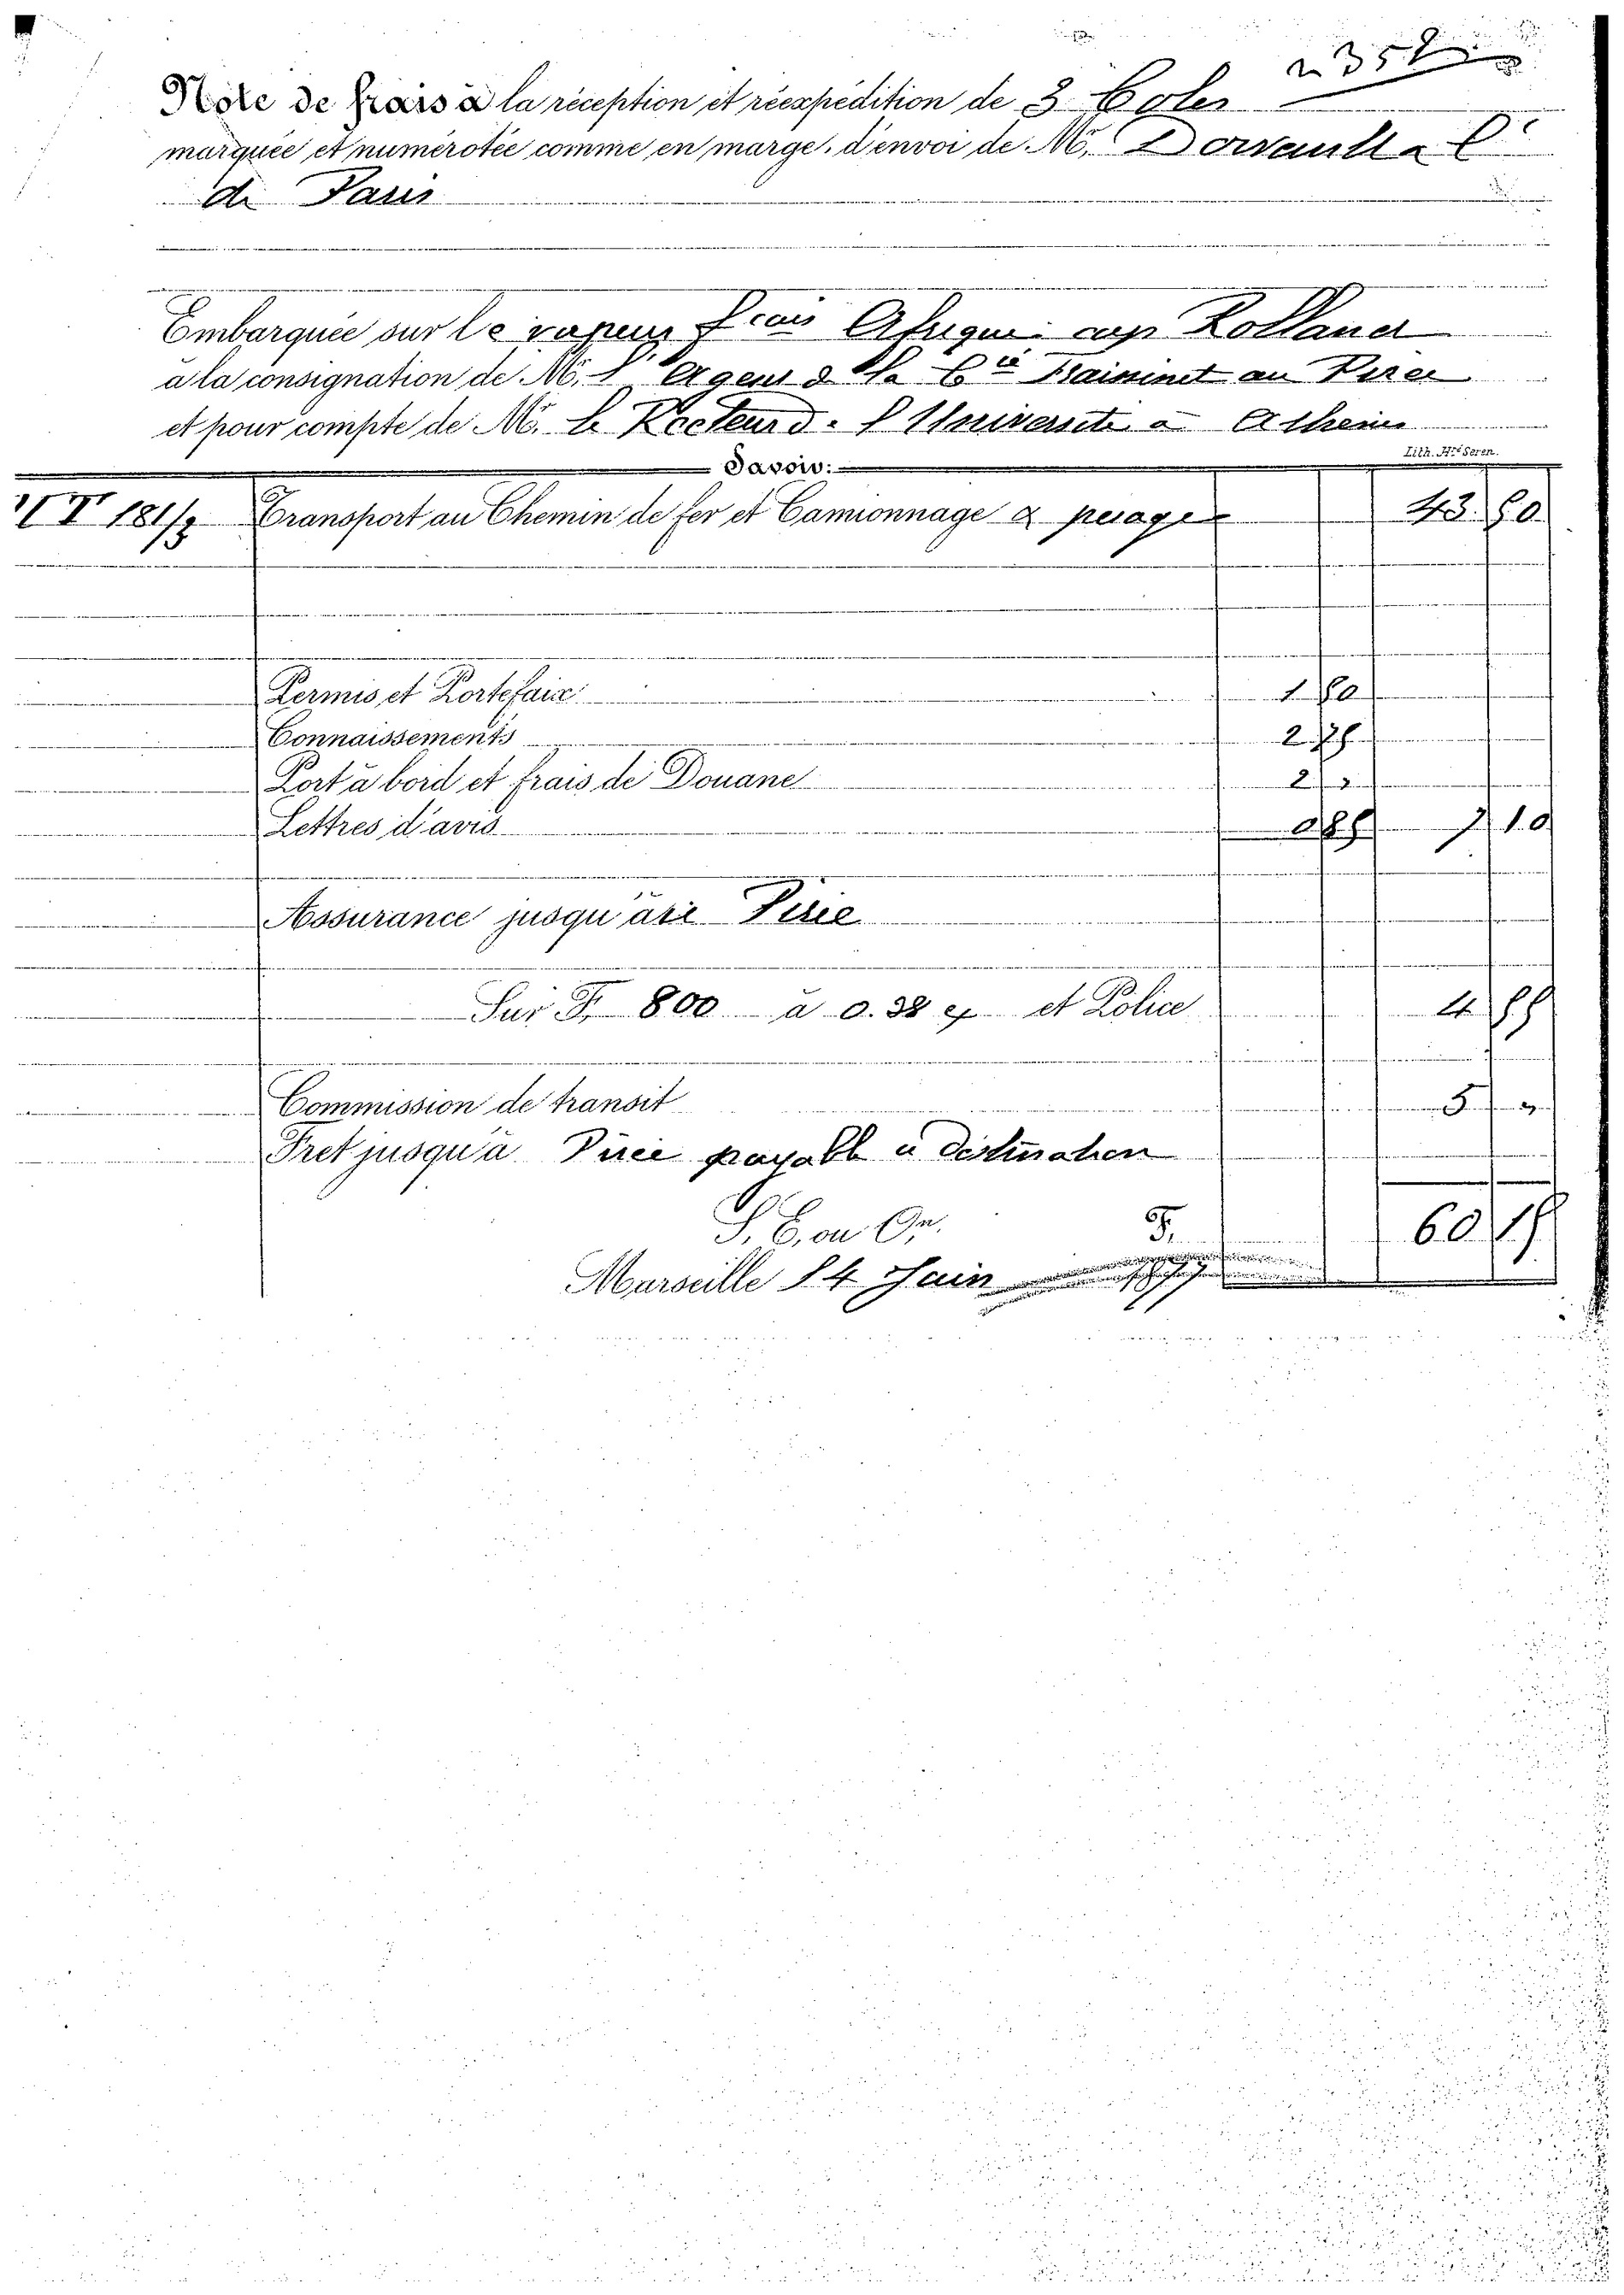 Note de frais à la réception et réexpédition de 3 Colis
marquée et numérotée comme en marge, d'envoi de Mr. Dorvault & Cie
de Paris
Embarquée sur le vapeur frais Afrique cap Rolland
à la consignation de Mr. l'Agent de la Cie Fraissinet au Pirée
et pour compte de Mr. le Recteur de l'Université à Athènes
Lith. Seren.
Savoir:
181/3 Transport au Chemin de fer et Camionnage & pesage 43.50
Permis et Portefaix 1.50
Connaissements 2.75
Port à bord et frais de Douane 2
Lettres d'avis 0.85 7 10
Assurance jusqu'au Pirée
Sur Fr. 800 à 0.38 et Police 4.55
Commission de transit 5
Fret jusqu'à Pirée payable à destination
S. E. ou On. F. 60.15
Marseille 14 Juin